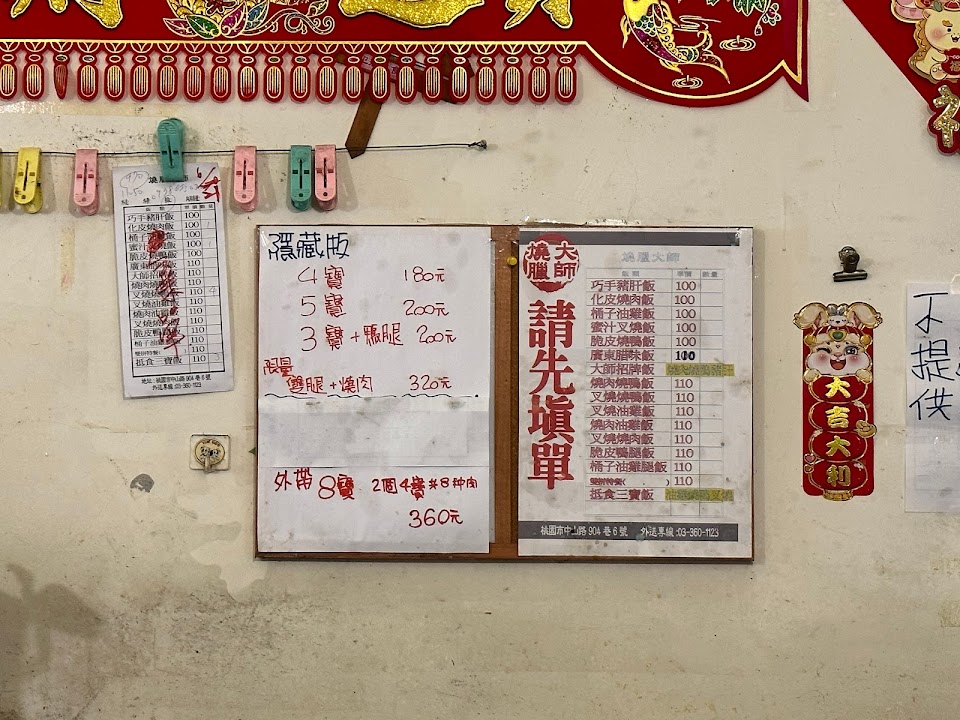 巧手豬肝飯 100
化皮燒肉飯 100
桶子油雞飯 100
蜜汁叉燒飯 100
脆皮燒鴨飯 100
110
110
110
110
110
110
110
110
抵食三寶飯 110
地址:桃園市中山路904巷6號
外送專線:03-360-1123
隱藏版
4寶 180元
5寶 200元
3寶+鴨腿 200元
限量
雙腿+燒肉 320元
外帶8寶 2個4寶共8种肉
360元
燒臘大師
請先填單
燒臘大師
飯類 單價 數量
巧手豬肝飯 100
化皮燒肉飯 100
桶子油雞飯 100
蜜汁叉燒飯 100
脆皮燒鴨飯 100
廣東腊味飯 100
大師招牌飯
燒肉燒鴨飯 110
叉燒燒鴨飯 110
叉燒油雞飯 110
燒肉油雞飯 110
叉燒燒肉飯 110
脆皮鴨腿飯 110
桶子油雞腿飯 110
雙拼特餐( ) 110
抵食三寶飯
桃園市中山路904巷6號 外送專線:03-360-1123
大吉大利
不提供